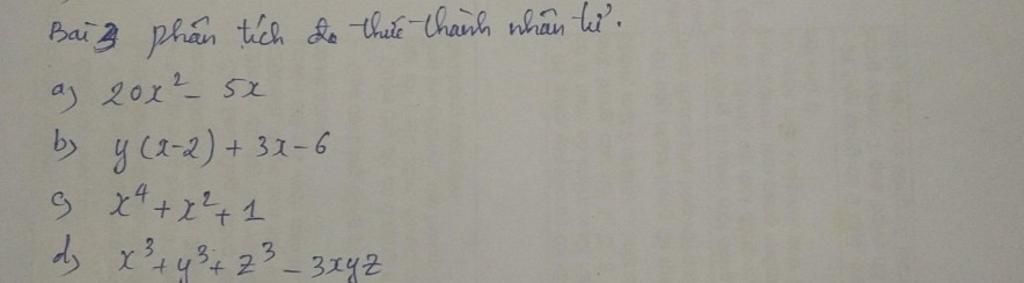 Bài 3 phân tích đa thức thành nhân tử.
a) 20x² - 5x
b) y(x-2) + 3x - 6
c) x⁴ + x² + 1
d) x³ + y³ + z³ - 3xyz